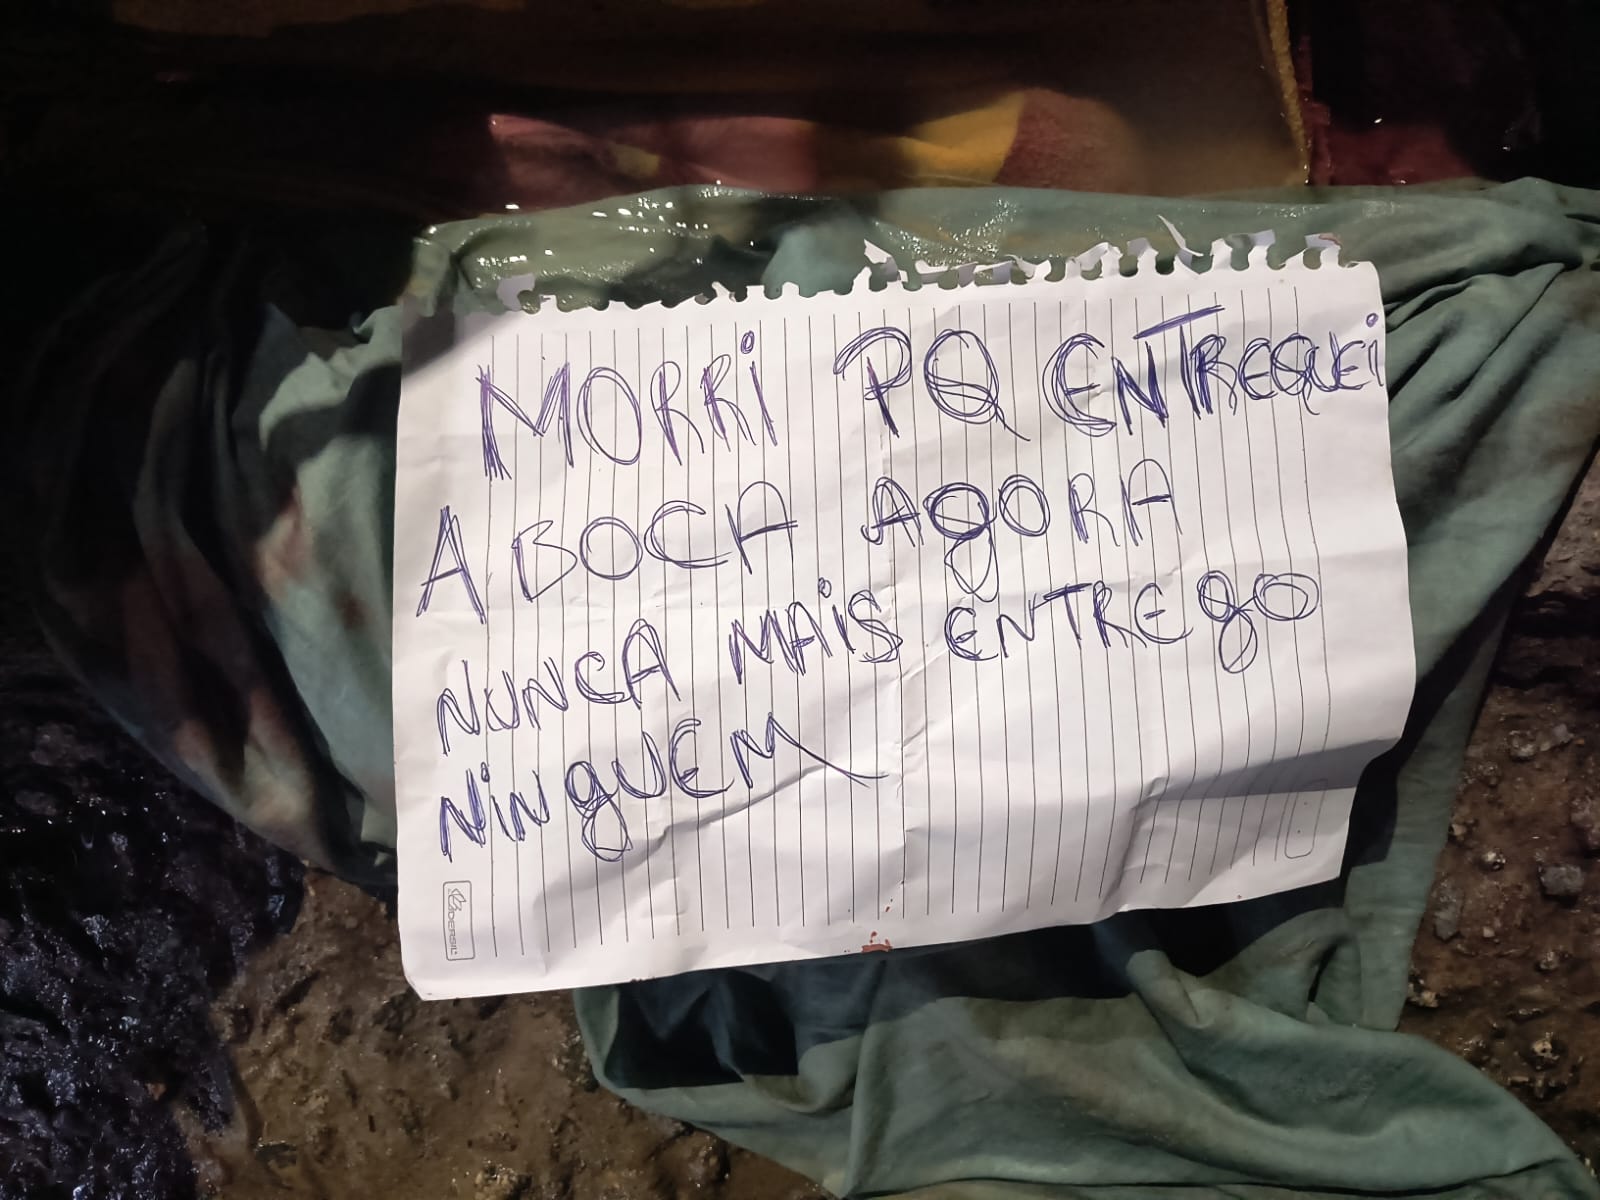 MORRI PQ ENTREGUEI
A BOCA AGORA
NUNCA MAIS ENTREGO
NINGUEM